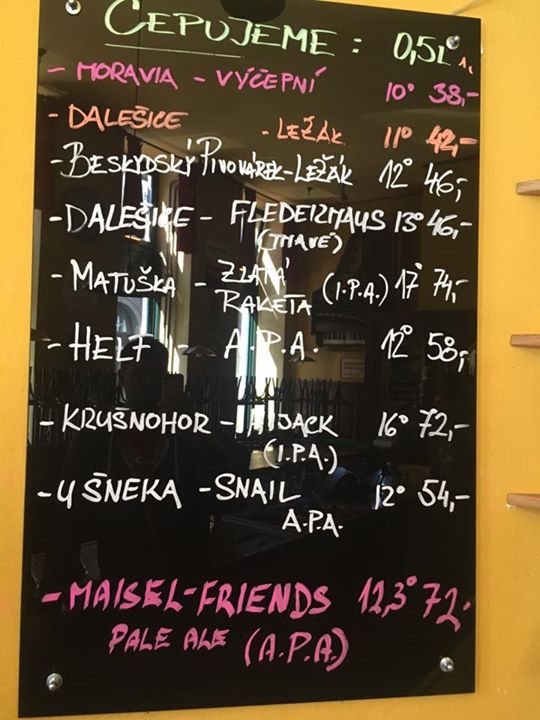 ČEPUJEME : 0,5L
- MORAVIA - VÝČEPNÍ 10° 38,-
- DALEŠICE - LEŽÁK 11° 42,-
- BESKYDSKÝ PIVOVÁREK - LEŽÁK 12° 46,-
- DALEŠICE - FLEDERMAUS 13° 46,-
(TMAVÉ)
- MATUŠKA - ZLATÁ RAKETA (I.P.A.) 17° 74,-
- HELF - A.P.A. 12° 58,-
- KRUŠNOHOR - JACK 16° 72,-
(I.P.A.)
- U ŠNEKA - SNAIL 12° 54,-
A.P.A.
- MAISEL-FRIENDS 12,3° 72,-
PALE ALE (A.P.A.)